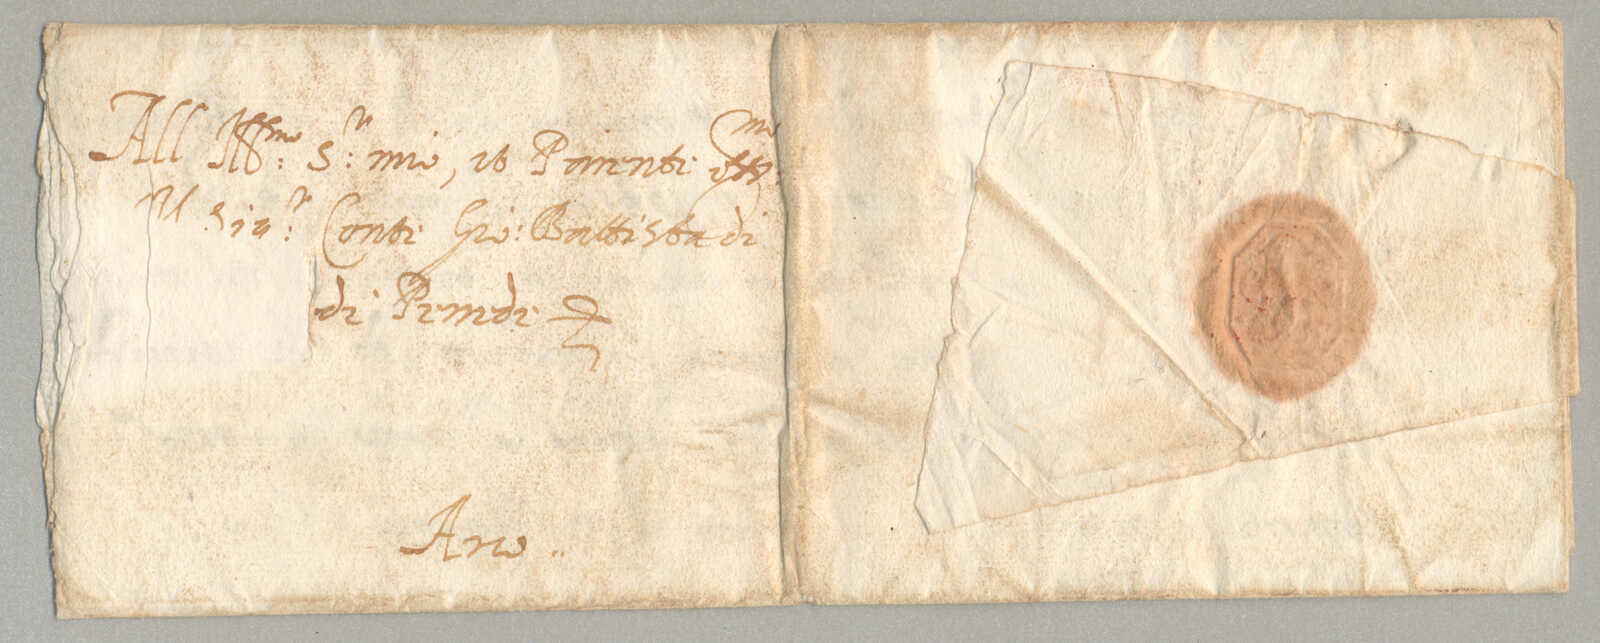 All Ill^mo: S^r: mio, et Parente oss^mo
Il Sig^r: Conte Gio: Battista di
di Penede
Arco..